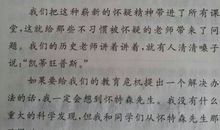 我们把这种崭新的怀疑精神带进了所有课
堂,这就给那些不习惯被怀疑的老师带来了问
题。我们的历史老师讲着讲着,就有人清清嗓子
说:“凯蒂旺普斯。”
如果要给我们的教育危机提出一个解决办
法的话,我一定会想到怀特森先生。我没有什么
重大的科学发现,但我和同学们从怀特森先生那